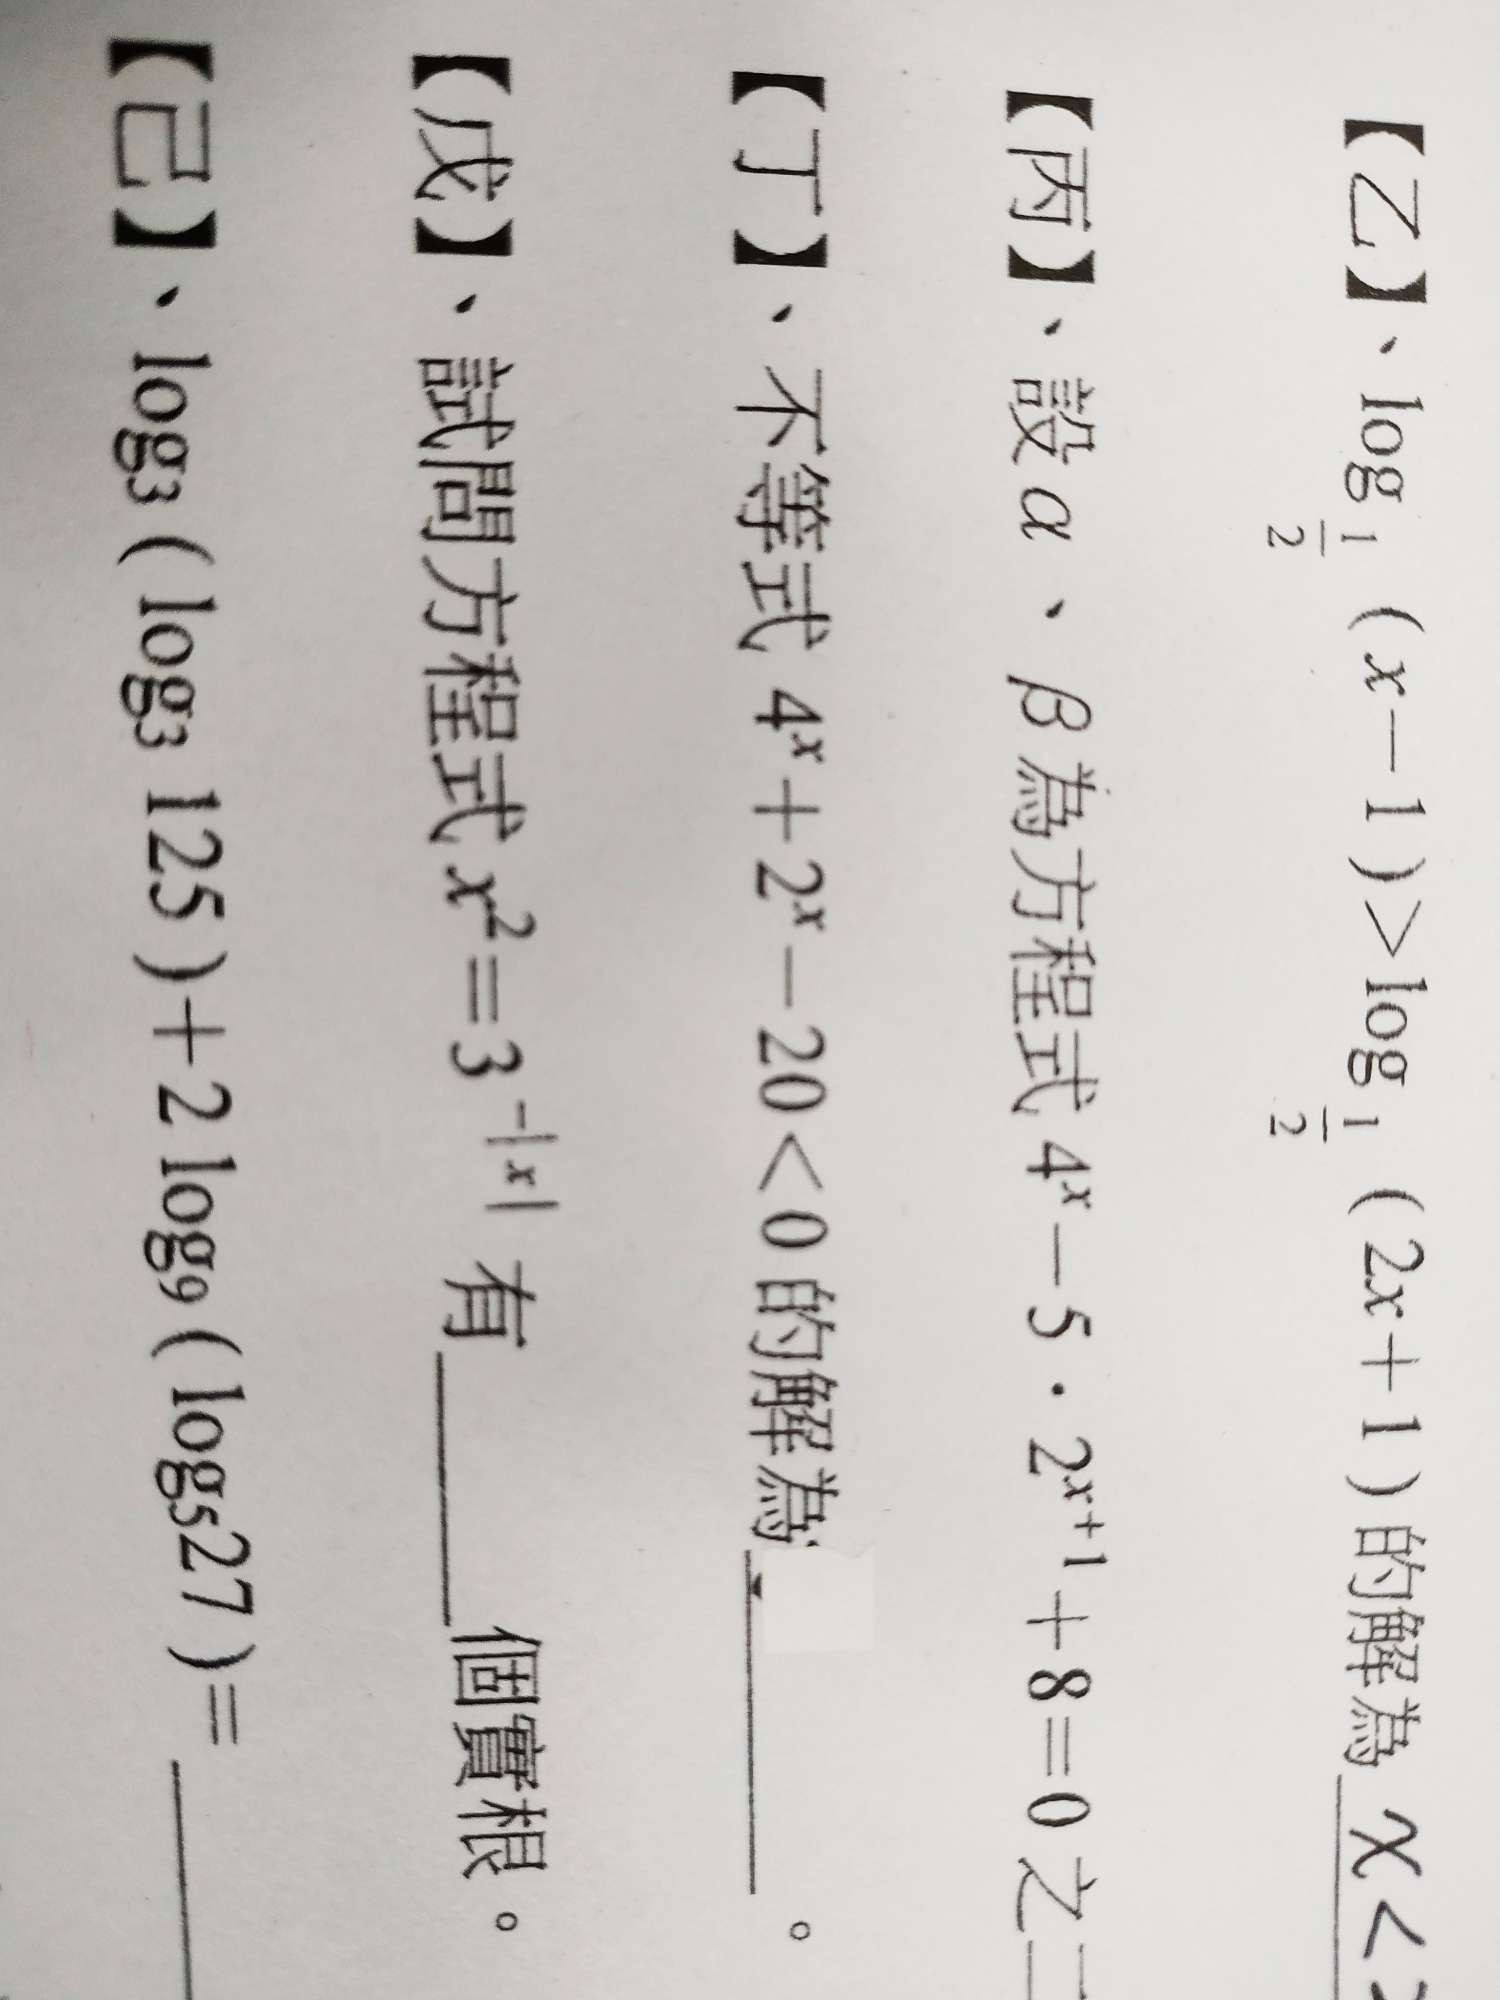 【乙】、log_{1/2}(x－1)>log_{1/2}(2x+1)的解為 x <
【丙】、設α、β為方程式4^x－5·2^{x+1}+8=0之二
【丁】、不等式4^x+2^x－20<0的解為______。
【戊】、試問方程式x²=3^{-|x|}有______個實根。
【己】、log₃(log₃ 125)+2 log₉(log₅27)=______